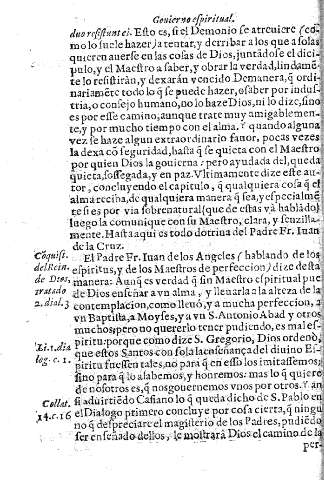 Gouierno espiritual.
duo resistunt ei. Esto es, si el Demonio se atreuiere (co-
mo lo suele hazer) a tentar, y derribar a los que a solas
quieren auerse en las cosas de Dios, juntãdose el dici-
pulo, y el Maestro a saber, y obrar la verdad, lindamẽ-
te lo resistiràn, y dexarán vencido Demanera, q̃ ordi-
nariamẽte todo lo q̃ se puede hazer, o saber por indus-
tria, o consejo humano, no lo haze Dios, ni lo dize, sino
es por esse camino, aunque trate muy amigablemen-
te, y por mucho tiempo con el alma. Y quando alguna
vez se haze algun extraordinario fauor, pocas vezes
la dexa cõ seguridad, hasta q̃ se quieta con el Maestro
por quien Dios la gouierna: pero ayudada del, queda
quieta, sossegada, y en paz. Vltimamente dize este au-
tor, concluyendo el capitulo, q̃ qualquiera cosa q̃ el
alma reciba, de qualquiera manera q̃ sea, y especialmẽ
te si es por via sobrenatural (que de estas và hablãdo)
luego la comunique con su Maestro, clara, y senzilla-
mente. Hasta aqui es todo dotrina del Padre Fr. Iuan
de la Cruz.
Cõquist.
del Rein.
de Dios,
tratado
2. dial. 3
El Padre Fr. Iuan de los Angeles (hablando de los
espiritus, y de los Maestros de perfeccion) dize desta
manera: Aunq̃ es verdad q̃ sin Maestro espiritual pue
de Dios enseñar a vn alma, y lleuarla a la alteza de la
contemplacion, como lleuò, y a mucha perfeccion, a
vn Baptista, a Moyses, y a vn S. Antonio Abad y otros
muchos; pero no quererlo tener pudiendo, es mal es-
piritu: porque como dize S. Gregorio, Dios ordenò,
que estos Santos con sola la enseñança del diuino Es-
piritu fuessen tales, no para q̃ en esso los imitassemos,
sino para q̃ lo alabemos, y honremos: mas lo q̃ quiere
de nosotros es, q̃ nos gouernemos vnos por otros. Y an
si aduirtiẽdo Casiano lo q̃ queda dicho de S. Pablo en
el Dialogo primero concluye por cosa cierta, q̃ ningu
no q̃ despreciare el magisterio de los Padres, pudiẽdo
ser enseñado dellos, le mostrarà Dios el camino de la
per-
Li. 1. dia
log. c. 1.
Collat.
14. c. 16